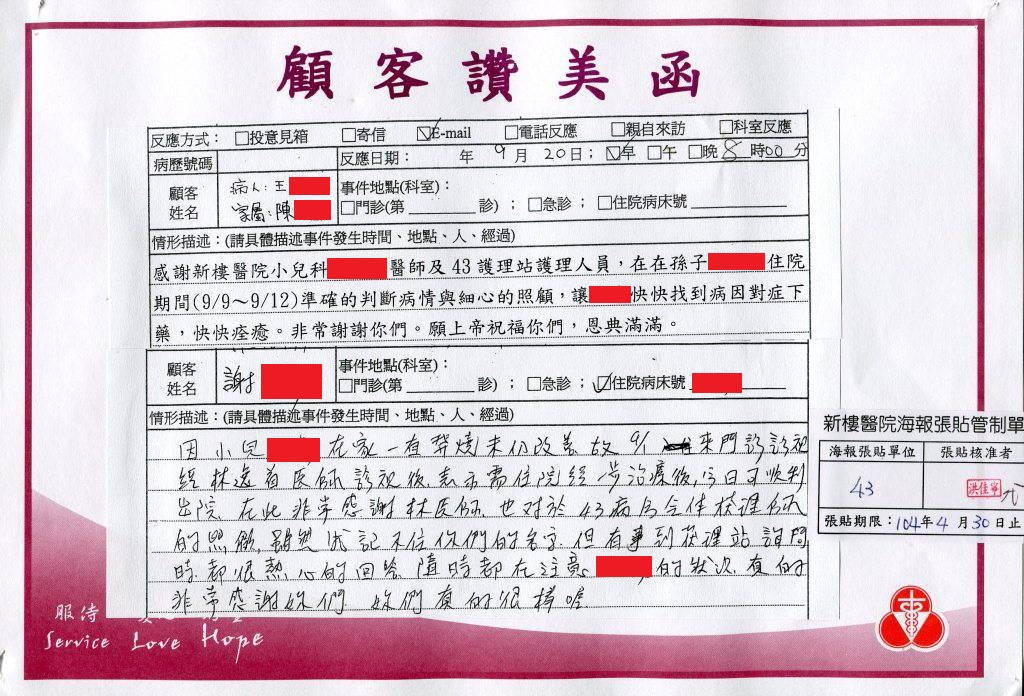 顧客讚美函
反應方式： □投意見箱 □寄信 ☑E-mail □電話反應 □親自來訪 □科室反應
病歷號碼 反應日期： 年 9 月 20 日； ☑早 □午 □晚 8 時00分
顧客姓名 病人：王 家屬：陳 事件地點(科室)：
□門診(第 診) ； □急診 ； □住院病床號
情形描述：(請具體描述事件發生時間、地點、人、經過)
感謝新樓醫院小兒科 醫師及 43 護理站護理人員，在在孫子 住院
期間(9/9～9/12)準確的判斷病情與細心的照顧，讓 快快找到病因對症下
藥，快快痊癒。非常謝謝你們。願上帝祝福你們，恩典滿滿。
顧客姓名 謝 事件地點(科室)：
□門診(第 診) ； □急診 ； ☑住院病床號
情形描述：(請具體描述事件發生時間、地點、人、經過)
因小兒 在家一有發燒未仍改善 故 9/ 來門診診視
經林 醫師診視後，表示需住院 步治療後，今日可順利
出院，在此非常感謝林醫師，也對於43病房全体護理師
的照顧，雖然我記不住你們的名字，但有事到護理站詢問
時，都很熱心的回答，隨時都在注意 的狀況，真的
非常感謝妳們 妳們真的很棒喔
新樓醫院海報張貼管制單
海報張貼單位 張貼核准者
43 洪佳寧
張貼期限：104年4月30日止
服侍
Service Love Hope